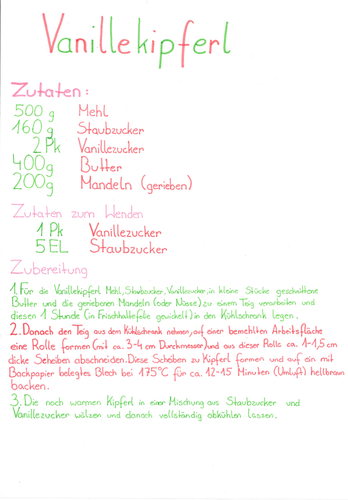 Vanillekipferl
Zutaten:
500 g Mehl
160 g Staubzucker
2 Pk Vanillezucker
400 g Butter
200 g Mandeln (gerieben)
Zutaten zum Wenden
1 Pk Vanillezucker
5 EL Staubzucker
Zubereitung
1. Für die Vanillekipferl Mehl, Staubzucker, Vanillezucker, in kleine Stücke geschnittene
Butter und die geriebenen Mandeln (oder Nüsse) zu einem Teig verarbeiten und
diesen 1 Stunde (in Frischhaltefolie gewickelt) in den Kühlschrank legen.
2. Danach den Teig aus dem Kühlschrank nehmen, auf einer bemehlten Arbeitsfläche
eine Rolle formen (mit ca. 3-4 cm Durchmesser) und aus dieser Rolle ca. 1-1,5 cm
dicke Scheiben abschneiden. Diese Scheiben zu Kipferl formen und auf ein mit
Backpapier belegtes Blech bei 175°C für ca. 12-15 Minuten (Umluft) hellbraun
backen.
3. Die noch warmen Kipferl in einer Mischung aus Staubzucker und
Vanillezucker wälzen und danach vollständig abkühlen lassen.